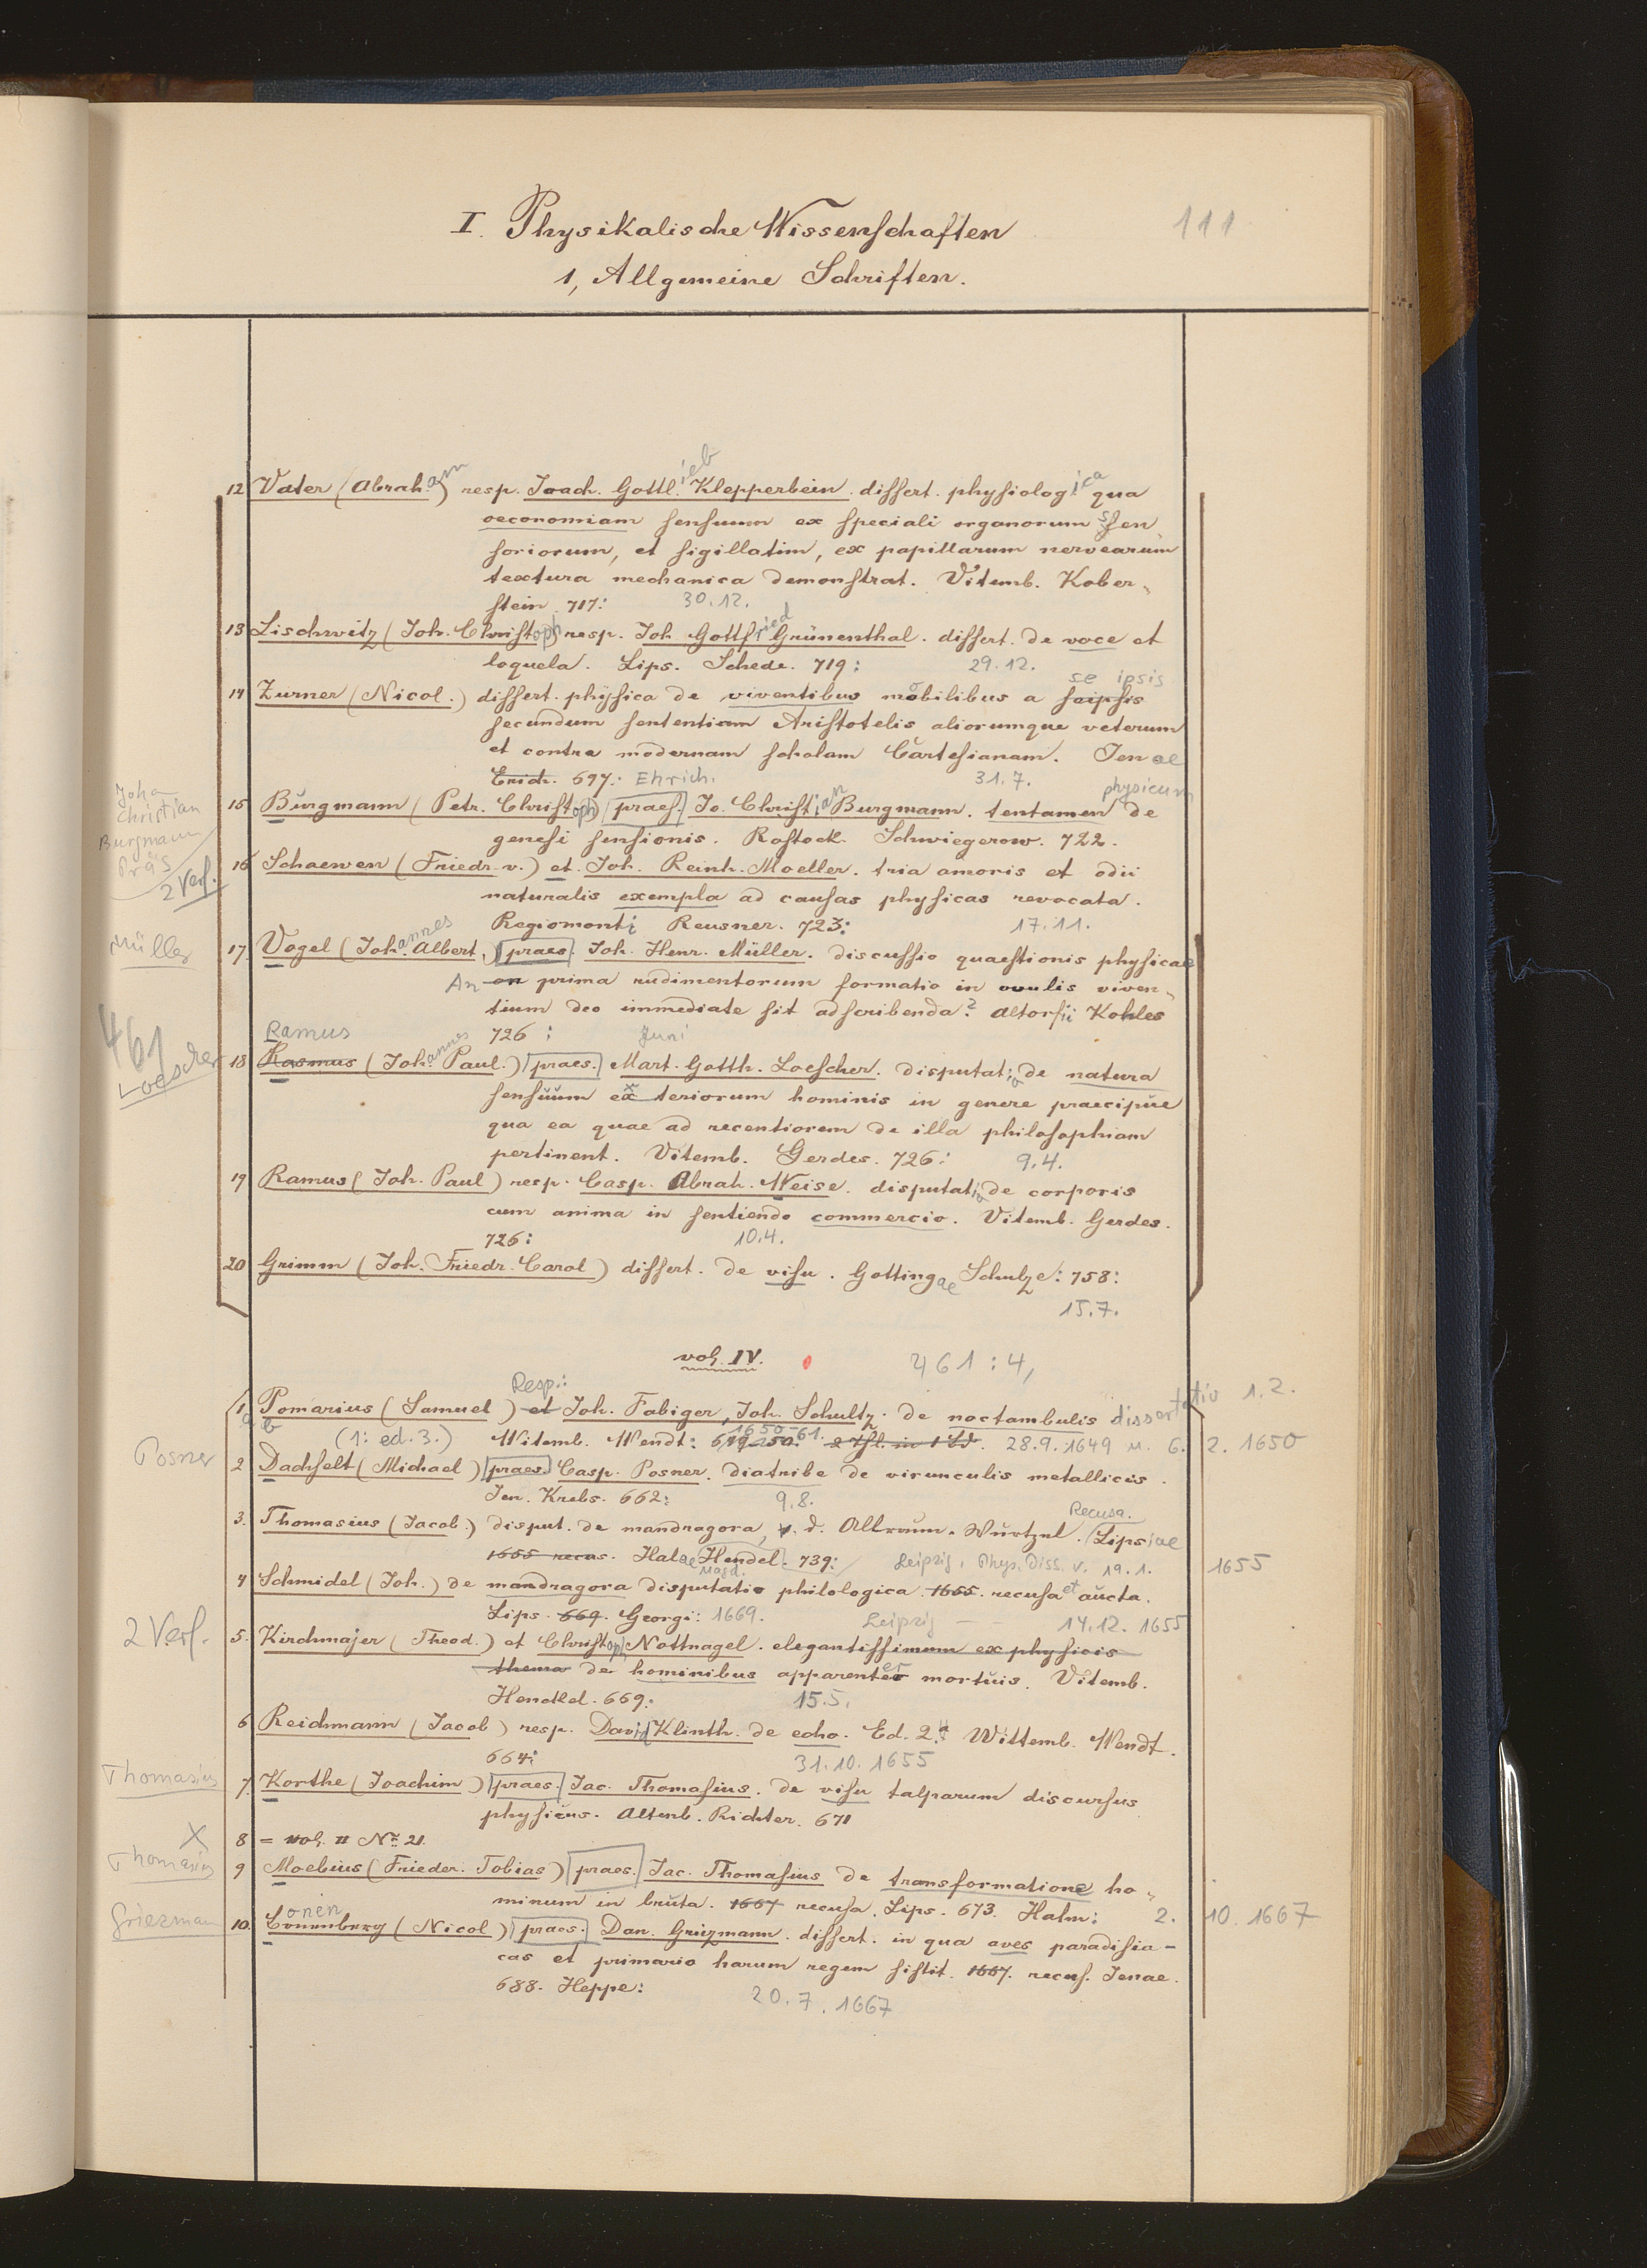 I. Physikalische Wissenschaften
111
1, Allgemeine Schriften.
12 Vater (Abraham) resp. Joach. Gottlieb Klepperbein. dissert. physiologica qua
oeconomiam sensuum ex speciali organorum sen
soriorum, et sigillatim, ex papillarum nervearum
textura mechanica demonstrat. Vitemb. Kober-
stein 717: 30.12.
13 Lischwitz (Joh. Christoph) resp. Joh. Gottfried Grünenthal. dissert. de voce et
loquela. Lips. Schede. 719: 29.12.
se ipsis
14 Zürner (Nicol.) dissert. physica de viventibus mobilibus a seipsis
secundum sententiam Aristotelis aliorumque veterum
et contra modernam scholam Cartesianam. Jenae
Erich. 697: Ehrich. 31.7.
physicum
Joha
Christian
Burgmann
Präs
15 Burgmann (Petr. Christoph) praes. Jo. Christian Burgmann. tentamen de
genesi sensionis. Rostock Schwiegerow. 722.
2 Verf.
16 Schaewen (Friedr. v.) et Joh. Reinh. Moeller. tria amoris et odii
naturalis exempla ad causas physicas revocata.
Regiomonti Reusner. 723: 17.11.
Müller
17 Vogel (Johannes Albert.) praes. Joh. Henr. Müller. discussio quaestionis physicae
An an prima rudimentorum formatio in ovulis viven-
tium deo immediate sit adscribenda? Altorfii Kohles
726: Juni
461
Loescher
Ramus
18 Rasmus (Johannes Paul.) praes. Mart. Gotth. Loescher. disputatio de natura
sensuum exteriorum hominis in genere praecipue
qua ea quae ad recentiorem de illa philosophiam
pertinent. Vitemb. Gerdes. 726: 9.4.
19 Ramus (Joh. Paul) resp. Casp. Abrah. Weise. disputatio de corporis
cum anima in sentiendo commercio. Vitemb. Gerdes.
726: 10.4.
20 Grimm (Joh. Friedr. Carol) dissert. de visu. Gottingae Schulze: 758:
15.7.
vol. IV. 461:4,
Resp.:
1 Pomarius (Samuel) et Joh. Fabiger, Joh. Schultz. de noctambulis dissertatio 1.2.
a b (1: ed. 3.) Witemb. Wendt: 649-50: 1650-61. 2 Thl. in 1 Bd. 28.9.1649 u. 6.2.1650
Posner
2 Dachselt (Michael) praes. Casp. Posner. diatribe de virunculis metallicis.
Jen. Krebs. 662: 9.8.
Recusa.
3. Thomasius (Jacob.) disput. de mandragora, v. d. Allraun-Wurtzel. Lipsiae
1655 recus. Halae Magd. Hendel. 739: Leipzig, Phys. Diss. v. 19.1. 1655
4 Schmidel (Joh.) de mandragora disputatio philologica. 1655. recusa et aucta.
Lips. 669. Georgi: 1669. Leipzig — 14.12.1655
2 Verf.
5. Kirchmajer (Theod.) et Christoph Nottnagel. elegantissimum ex physicis
thema de hominibus apparenter mortuis. Vitemb.
Henckel. 669: 15.5.
6 Reichmann (Jacob) resp. David Klinth. de echo. Ed. 2a Wittemb. Wendt.
664: 31.10.1655
Thomasius
7. Korthe (Joachim) praes. Jac. Thomasius. de visu talparum discursus
physicus. Altenb. Richter. 671
X
8 = vol. II No. 21.
Thomasius
9 Moebius (Frieder. Tobias) praes. Jac. Thomasius de transformatione ho-
minum in bruta. 1667 recusa. Lips. 673. Hahn: 2.10.1667
Griezmann
onen
10. Conenberg (Nicol) praes. Dan. Griezmann. dissert. in qua aves paradisia-
cas et primario harum regem sistit. 1667. recus. Jenae.
688. Heppe: 20.7.1667